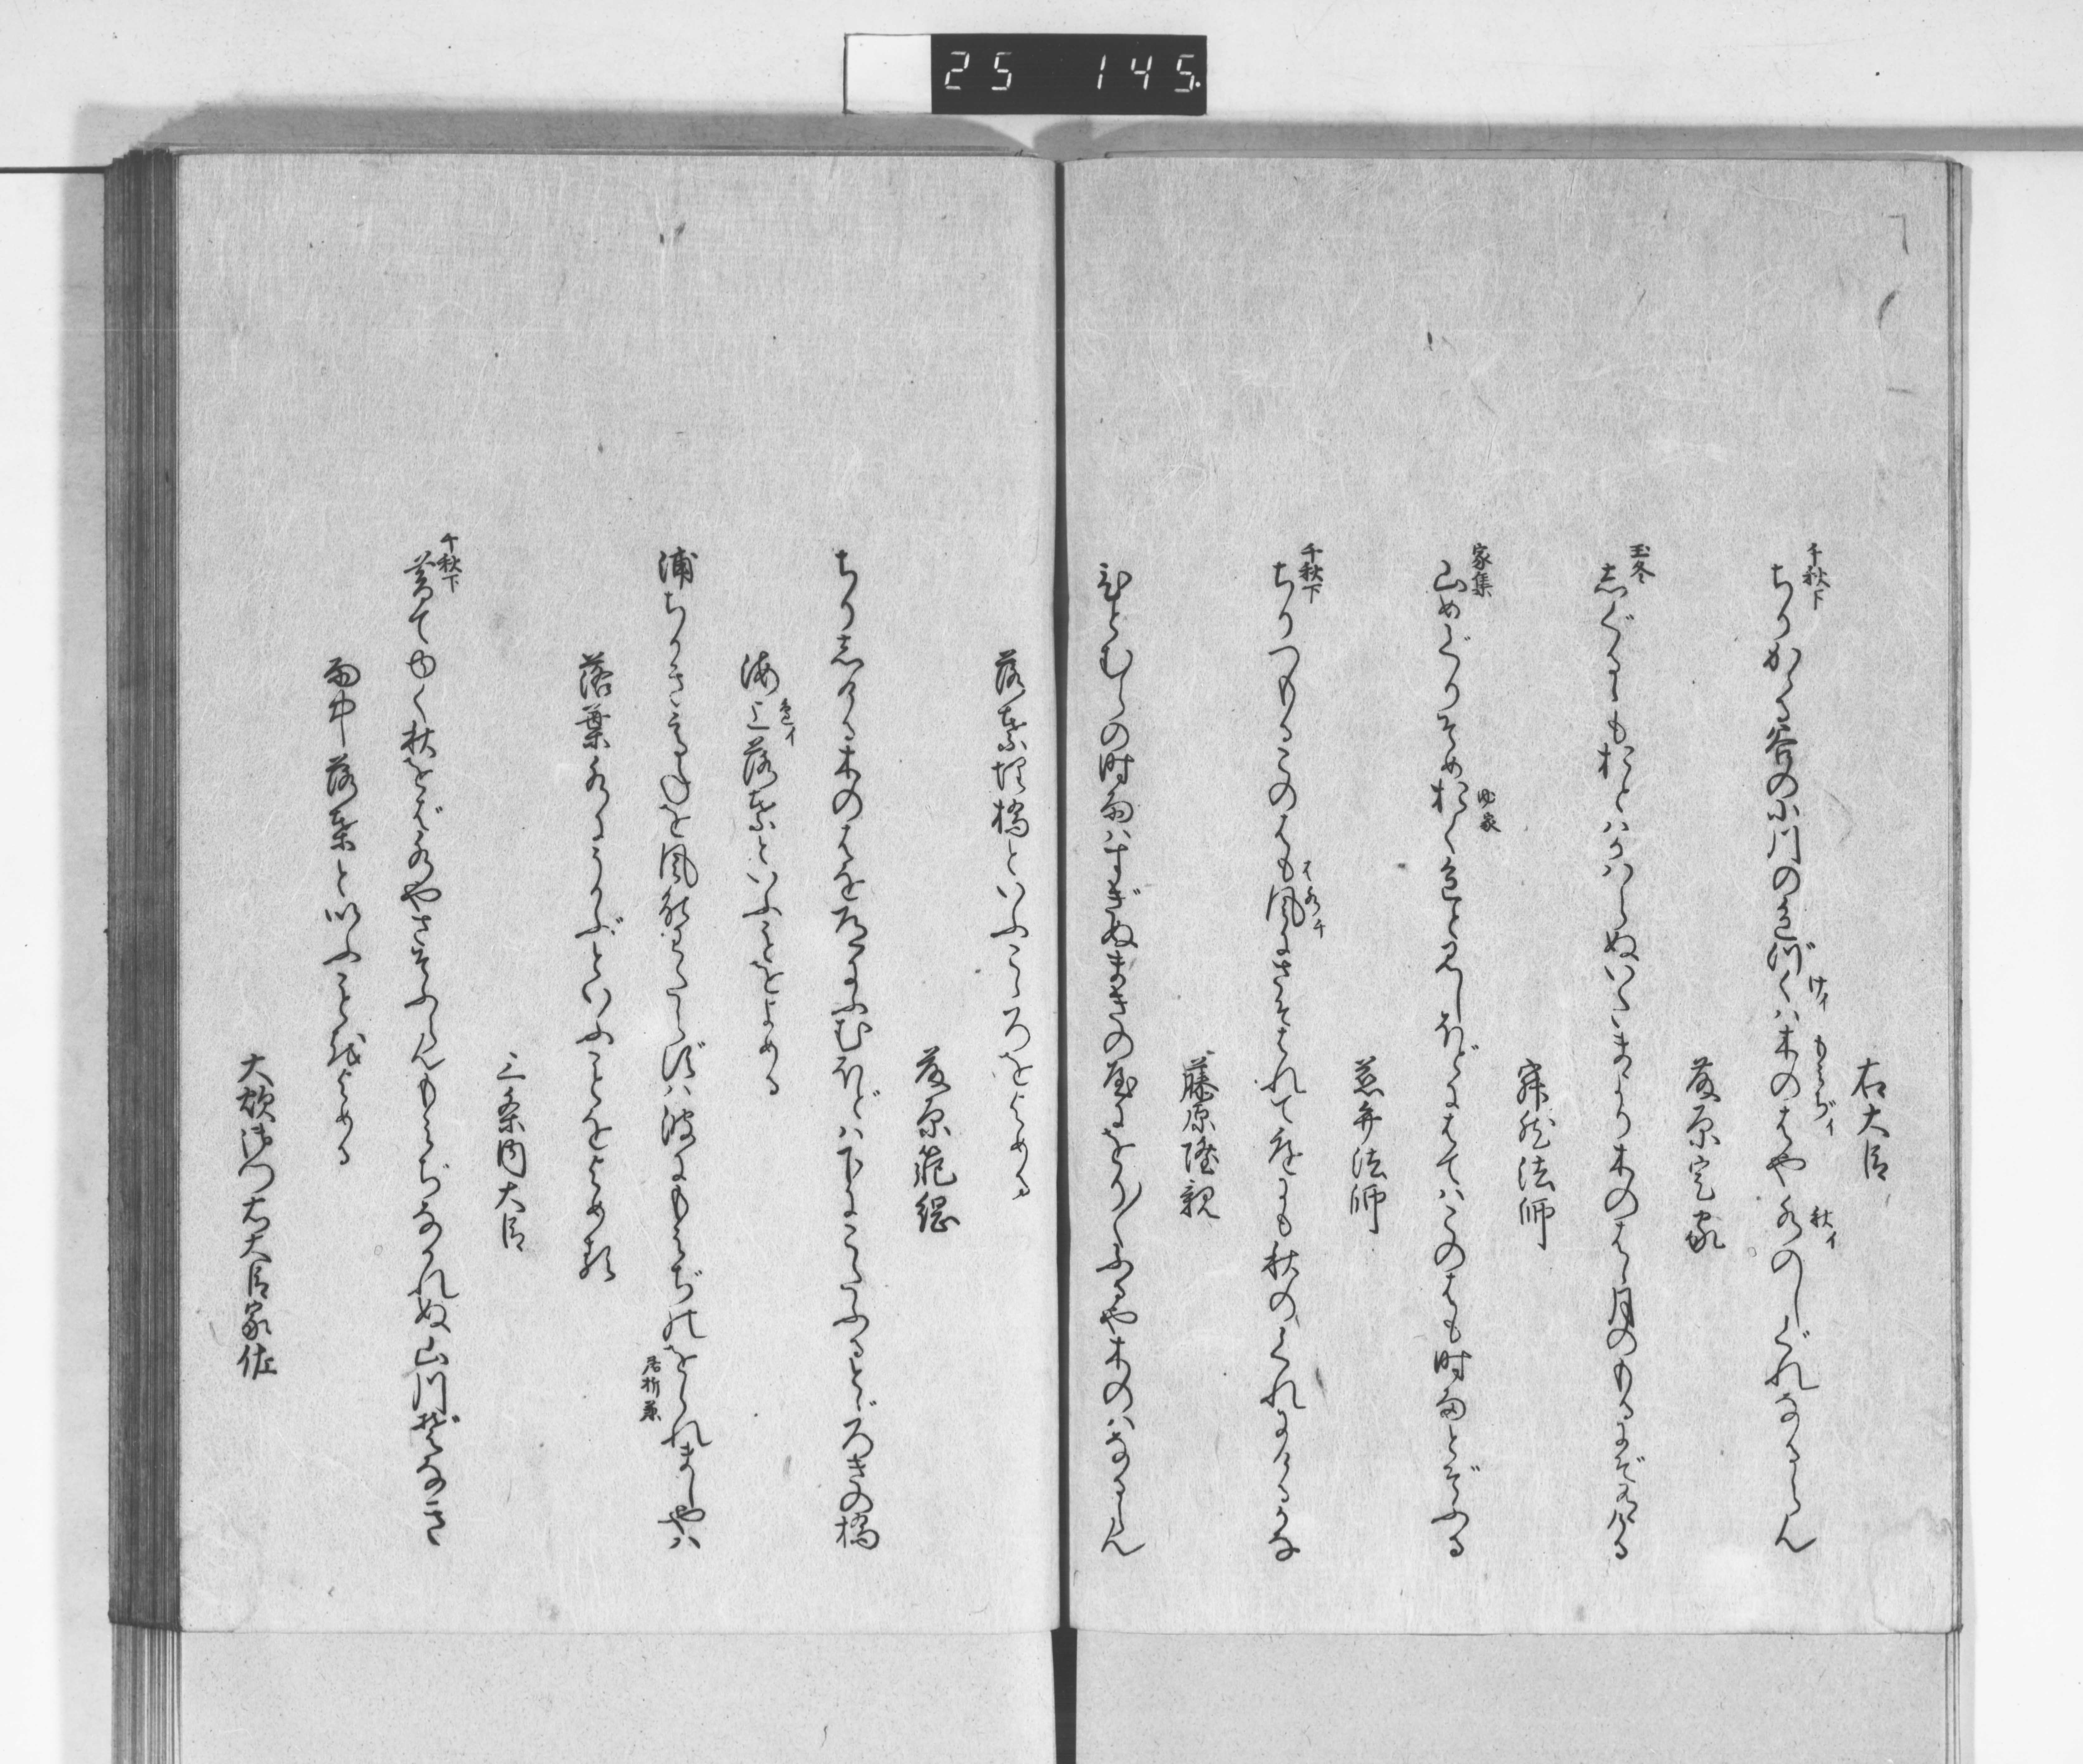 25 145.
右大臣
千秋下
ちりかゝる谷の小川の色づくは木のはや水のしぐれなるらん
けイ もみぢイ 秋イ
藤原定家
玉冬
しぐるゝもおとはかはらぬいたまより木のはゝ月のもるまでなりけり
寂然法師
家集
山めぐりそめおく色とみしほどにはては このはも時雨とぞふる
慈弁法師
千秋下
ちりつもるこのはも風にさそはれて庭にも秋のくれにけるかな
はゝ千
藤原隆親
ひとむらの時雨はすぎぬまきの屋にをり〳〵ふるや木のはなるらん
落葉埋橋といふこゝろをよめる
藤原範綱
ちりしける木のはを道にふむほどは下にこたふるとゞろきの橋
海上落葉といふことをよめる
色イ
浦ちかき を風 ずは波にもみぢのをられましやは
落葉水にうかぶといふことをよめる
三条内大臣
千秋下
暮てゆく秋をば水やさそふらんもみぢながれぬ山川ぞなき
雨中落葉といふことをよめる
大炊御門右大臣家佐